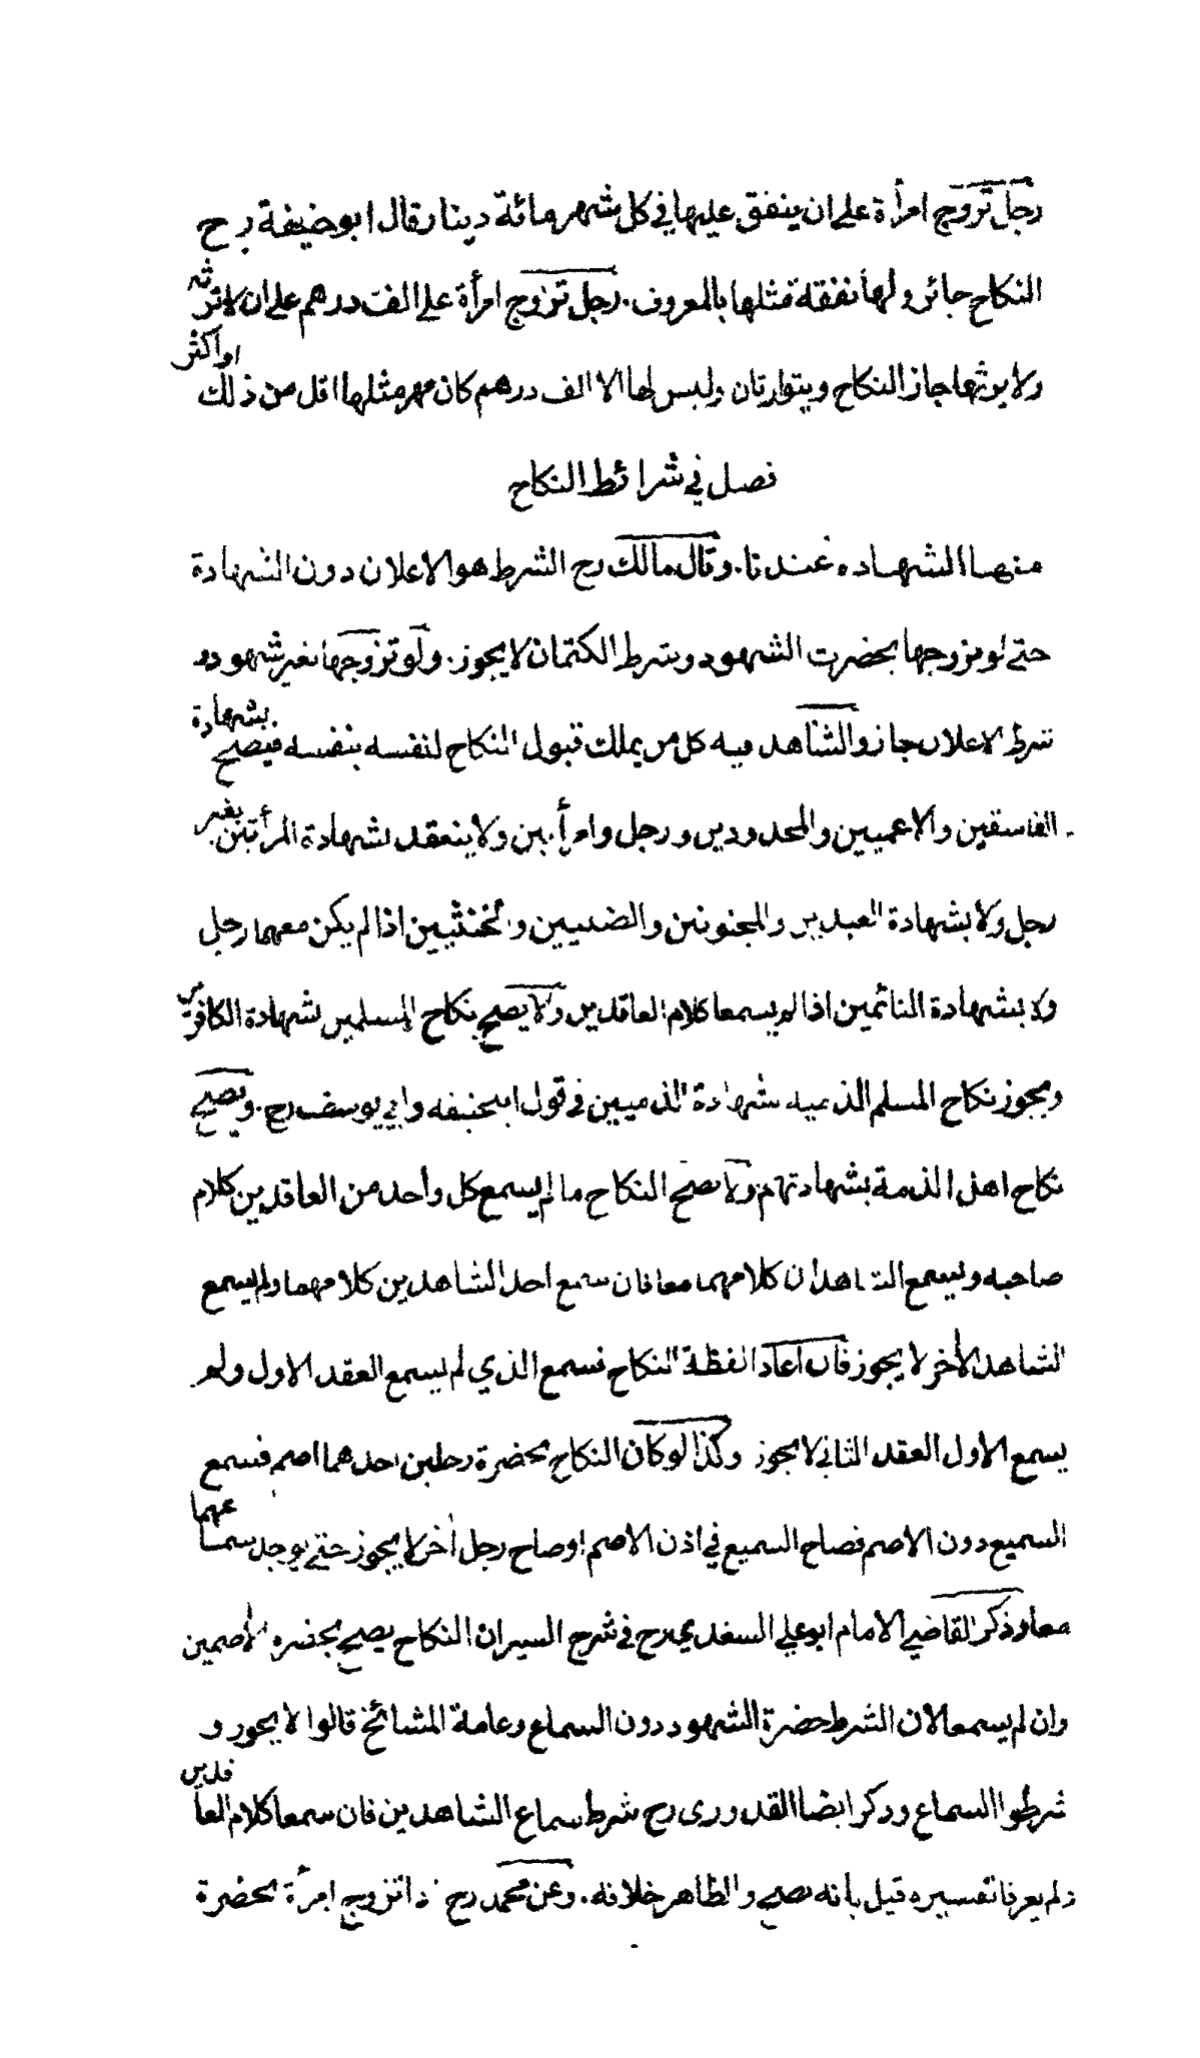 رجل تزوج امرأة على ان ينفق عليها في كل شهر مائة دينار قال ابو حنيفة رح
النكاح جائز ولها نفقة مثلها بالمعروف. رجل تزوج امرأة على الف درهم على ان لا ترثه
ولا يورثها جاز النكاح ويتوارثان وليس لها الا الف درهم كان مهر مثلها اقل من ذلك او اكثر
فصل في شرائط النكاح
منها الشهاده عندنا. وقال مالك رح الشرط هو الاعلان دون الشهادة
حتى لو تزوجها بحضرت الشهود وشرط الكتمان لا يجوز. ولو تزوجها بغير شهود و
شرط الاعلان جاز والشاهد فيه كل من يملك قبول النكاح لنفسه بنفسه فيصح بشهادة
الفاسقين والاعميين والمحدودين ورجل وامرأتين ولا ينعقد بشهادة المرأتين بغير
رجل ولا بشهادة العبدين والمجنونين والصبيين والخنثيين اذا لم يكن معهما رجل
ولا بشهادة النائمين اذا لم يسمعا كلام العاقدين ولا يصح نكاح المسلمين بشهادة الكافرين
ويجوز نكاح المسلم الذميه بشهادة الذميين في قول ابيحنيفه وابي يوسف رح. ويصح
نكاح اهل الذمة بشهادتهم ولا يصح النكاح ما لم يسمع كل واحد من العاقدين كلام
صاحبه ويسمع الشاهدان كلامهما معا فان سمع احد الشاهدين كلامهما ولم يسمع
الشاهد الأخر لا يجوز فان اعاد الفظة النكاح فسمع الذي لم يسمع العقد الاول ولم
يسمع الاول العقد الثاني لا يجوز وكذا لو كان النكاح بحضرة رجلين احدهما اصم فسمع
السميع دون الاصم فصاح السميع في اذن الاصم اوصاح رجل أخر لا يجوز حتى يوجد سماعهما
معا وذكر القاضي الامام ابو علي السغدي رح في شرح السير ان النكاح يصح بحضره الأصمين
وان لم يسمعا لان الشرط حضرة الشهود دون السماع وعامة المشائخ قالوا لا يجوز و
شرطوا السماع وذكر ايضا القدورى رح شرط سماع الشاهدين فان سمعا كلام العاقدين
ولم يعرفا تفسيره قيل بانه يصح والظاهر خلافه. وعن محمد رح اذا تزوج امرأة بحضرة